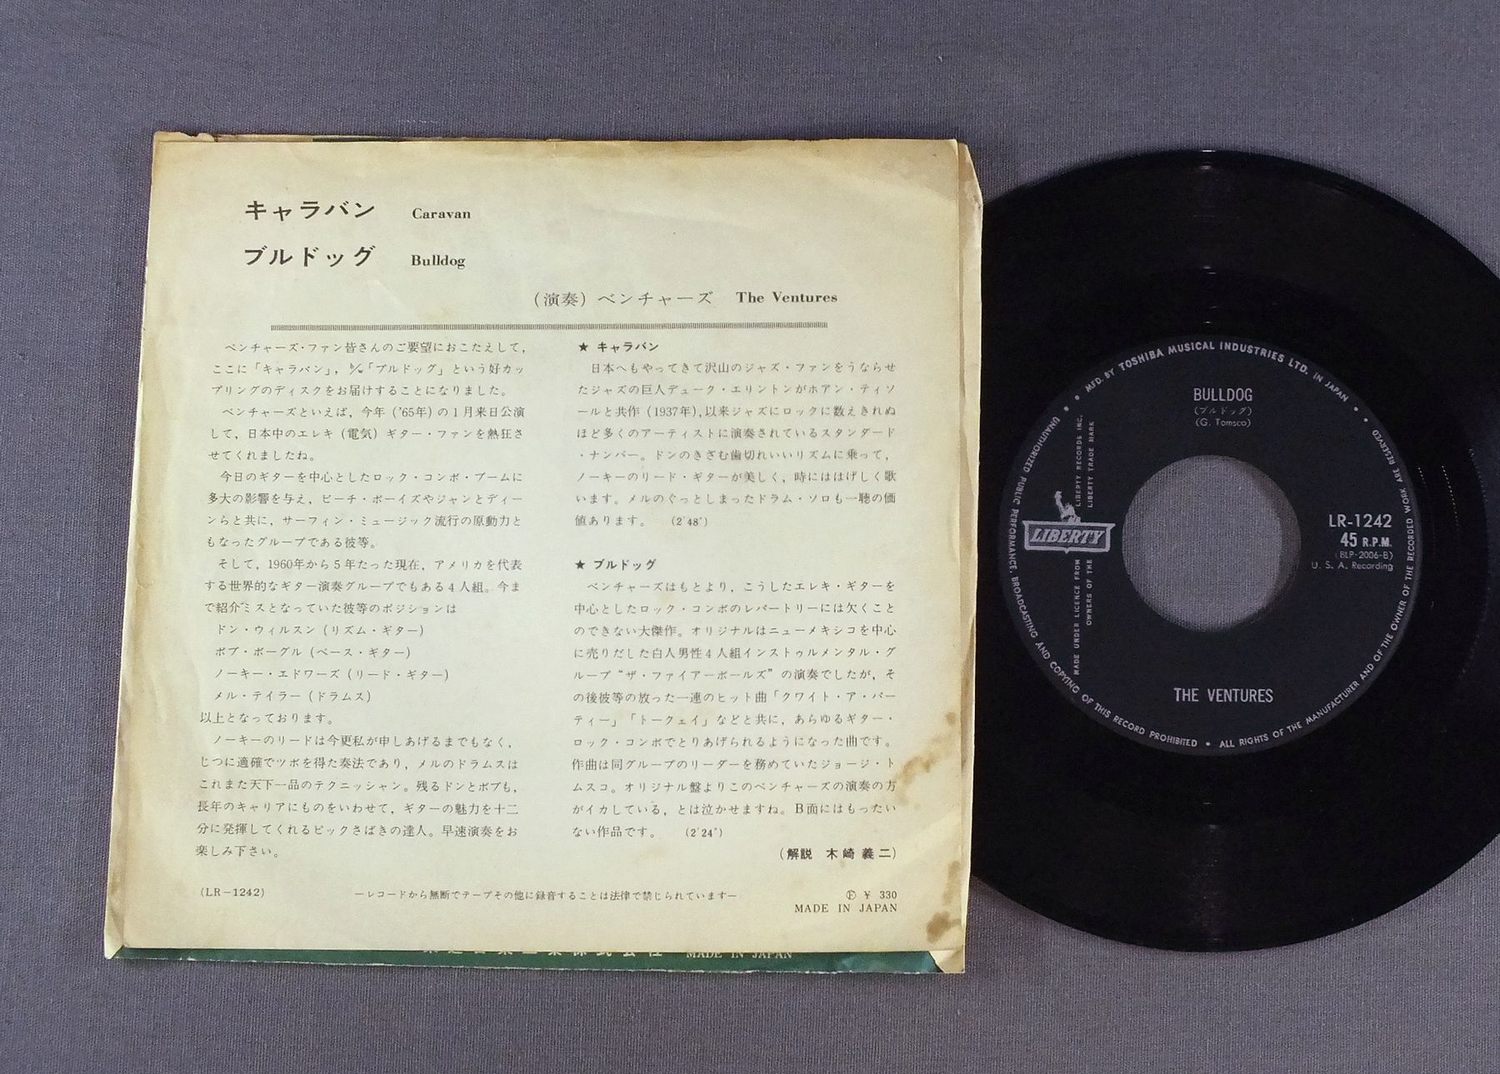 キャラバン Caravan
ブルドッグ Bulldog
(演奏) ベンチャーズ The Ventures
ベンチャーズ・ファン皆さんのご要望におこたえして,
ここに「キャラバン」, b/w「ブルドッグ」という好カッ
プリングのディスクをお届けすることになりました。
ベンチャーズといえば, 今年 ('65年) の1月来日公演
して, 日本中のエレキ (電気) ギター・ファンを熱狂さ
せてくれましたね。
今日のギターを中心としたロック・コンボ・ブームに
多大の影響を与え, ビーチ・ボーイズやジャンとディー
ンらと共に, サーフィン・ミュージック流行の原動力と
もなったグループである彼等。
そして, 1960年から5年たった現在, アメリカを代表
する世界的なギター演奏グループでもある4人組。今ま
で紹介ミスとなっていた彼等のポジションは
ドン・ウィルスン (リズム・ギター)
ボブ・ボーグル (ベース・ギター)
ノーキー・エドワーズ (リード・ギター)
メル・テイラー (ドラムス)
以上となっております。
ノーキーのリードは今更私が申しあげるまでもなく,
じつに適確でツボを得た奏法であり, メルのドラムスは
これまた天下一品のテクニッシャン。残るドンとボブも,
長年のキャリアにものをいわせて, ギターの魅力を十二
分に発揮してくれるピックさばきの達人。早速演奏をお
楽しみ下さい。
★ キャラバン
日本へもやってきて沢山のジャズ・ファンをうならせ
たジャズの巨人デューク・エリントンがホアン・ティソ
ールと共作 (1937年), 以来ジャズにロックに数えきれぬ
ほど多くのアーティストに演奏されているスタンダード
・ナンバー。ドンのきざむ歯切れいいリズムに乗って,
ノーキーのリード・ギターが美しく, 時にははげしく歌
います。メルのぐっとしまったドラム・ソロも一聴の価
値あります。 (2'48")
★ ブルドッグ
ベンチャーズはもとより, こうしたエレキ・ギターを
中心としたロック・コンボのレパートリーには欠くこと
のできない大傑作。オリジナルはニューメキシコを中心
に売りだした白人男性4人組インストゥルメンタル・グ
ループ“ザ・ファイアーボールズ”の演奏でしたが, そ
の後彼等の放った一連のヒット曲「クワイト・ア・パー
ティー」「トークェイ」などと共に, あらゆるギター・
ロック・コンボでとりあげられるようになった曲です。
作曲は同グループのリーダーを務めていたジョージ・ト
ムスコ。オリジナル盤よりこのベンチャーズの演奏の方
がイカしている, とは泣かせますね。B面にはもったい
ない作品です。 (2'24")
(解説 木崎義二)
(LR-1242) —レコードから無断でテープその他に録音することは法律で禁じられています— Ⓕ ¥ 330
MADE IN JAPAN
MADE IN JAPAN
MFD. BY TOSHIBA MUSICAL INDUSTRIES LTD. IN JAPAN
BULLDOG
(ブルドッグ)
(G. Tomsco)
LIBERTY
LR-1242
45 R.P.M.
(BLP-2006-B)
U. S. A. Recording
MADE UNDER LICENCE FROM LIBERTY RECORDS INC.
OWNERS OF THE LIBERTY TRADE MARK
THE VENTURES
ALL RIGHTS OF THE MANUFACTURER AND OF THE OWNER OF THE RECORDED WORK ARE RESERVED
UNAUTHORIZED PUBLIC PERFORMANCE, BROADCASTING AND COPYING OF THIS RECORD PROHIBITED